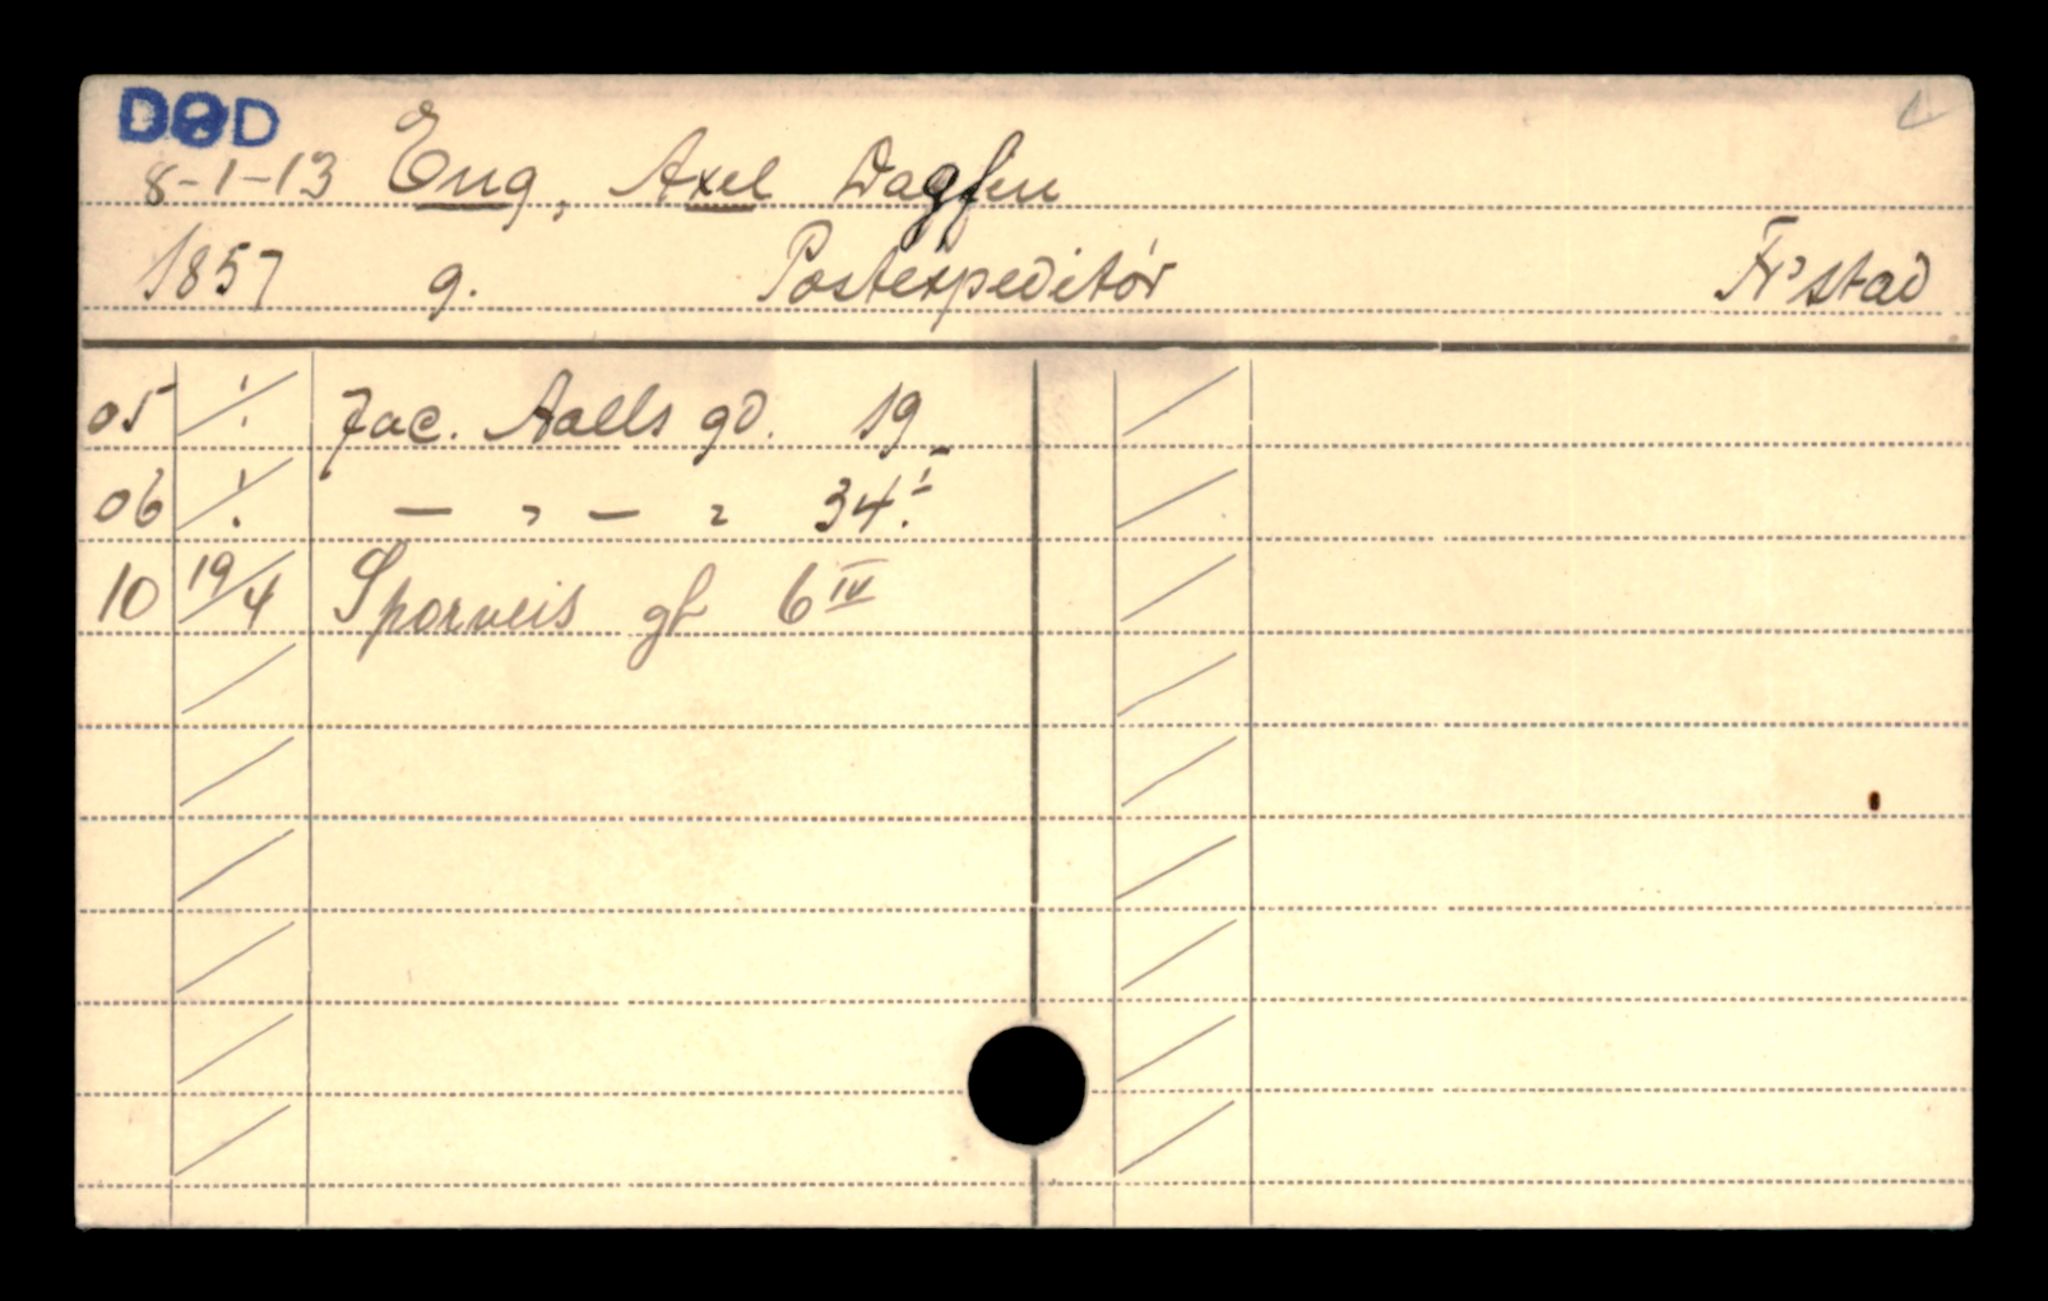 DØD
8-1-13 Eng, Axel Dagfin
1857 g. Postexpeditør Fr'stad
05 ÷ Jac. Aalls gd. 19
06 ÷ — " — " 34.I
10 19/4 Sporveis gt 6 IV